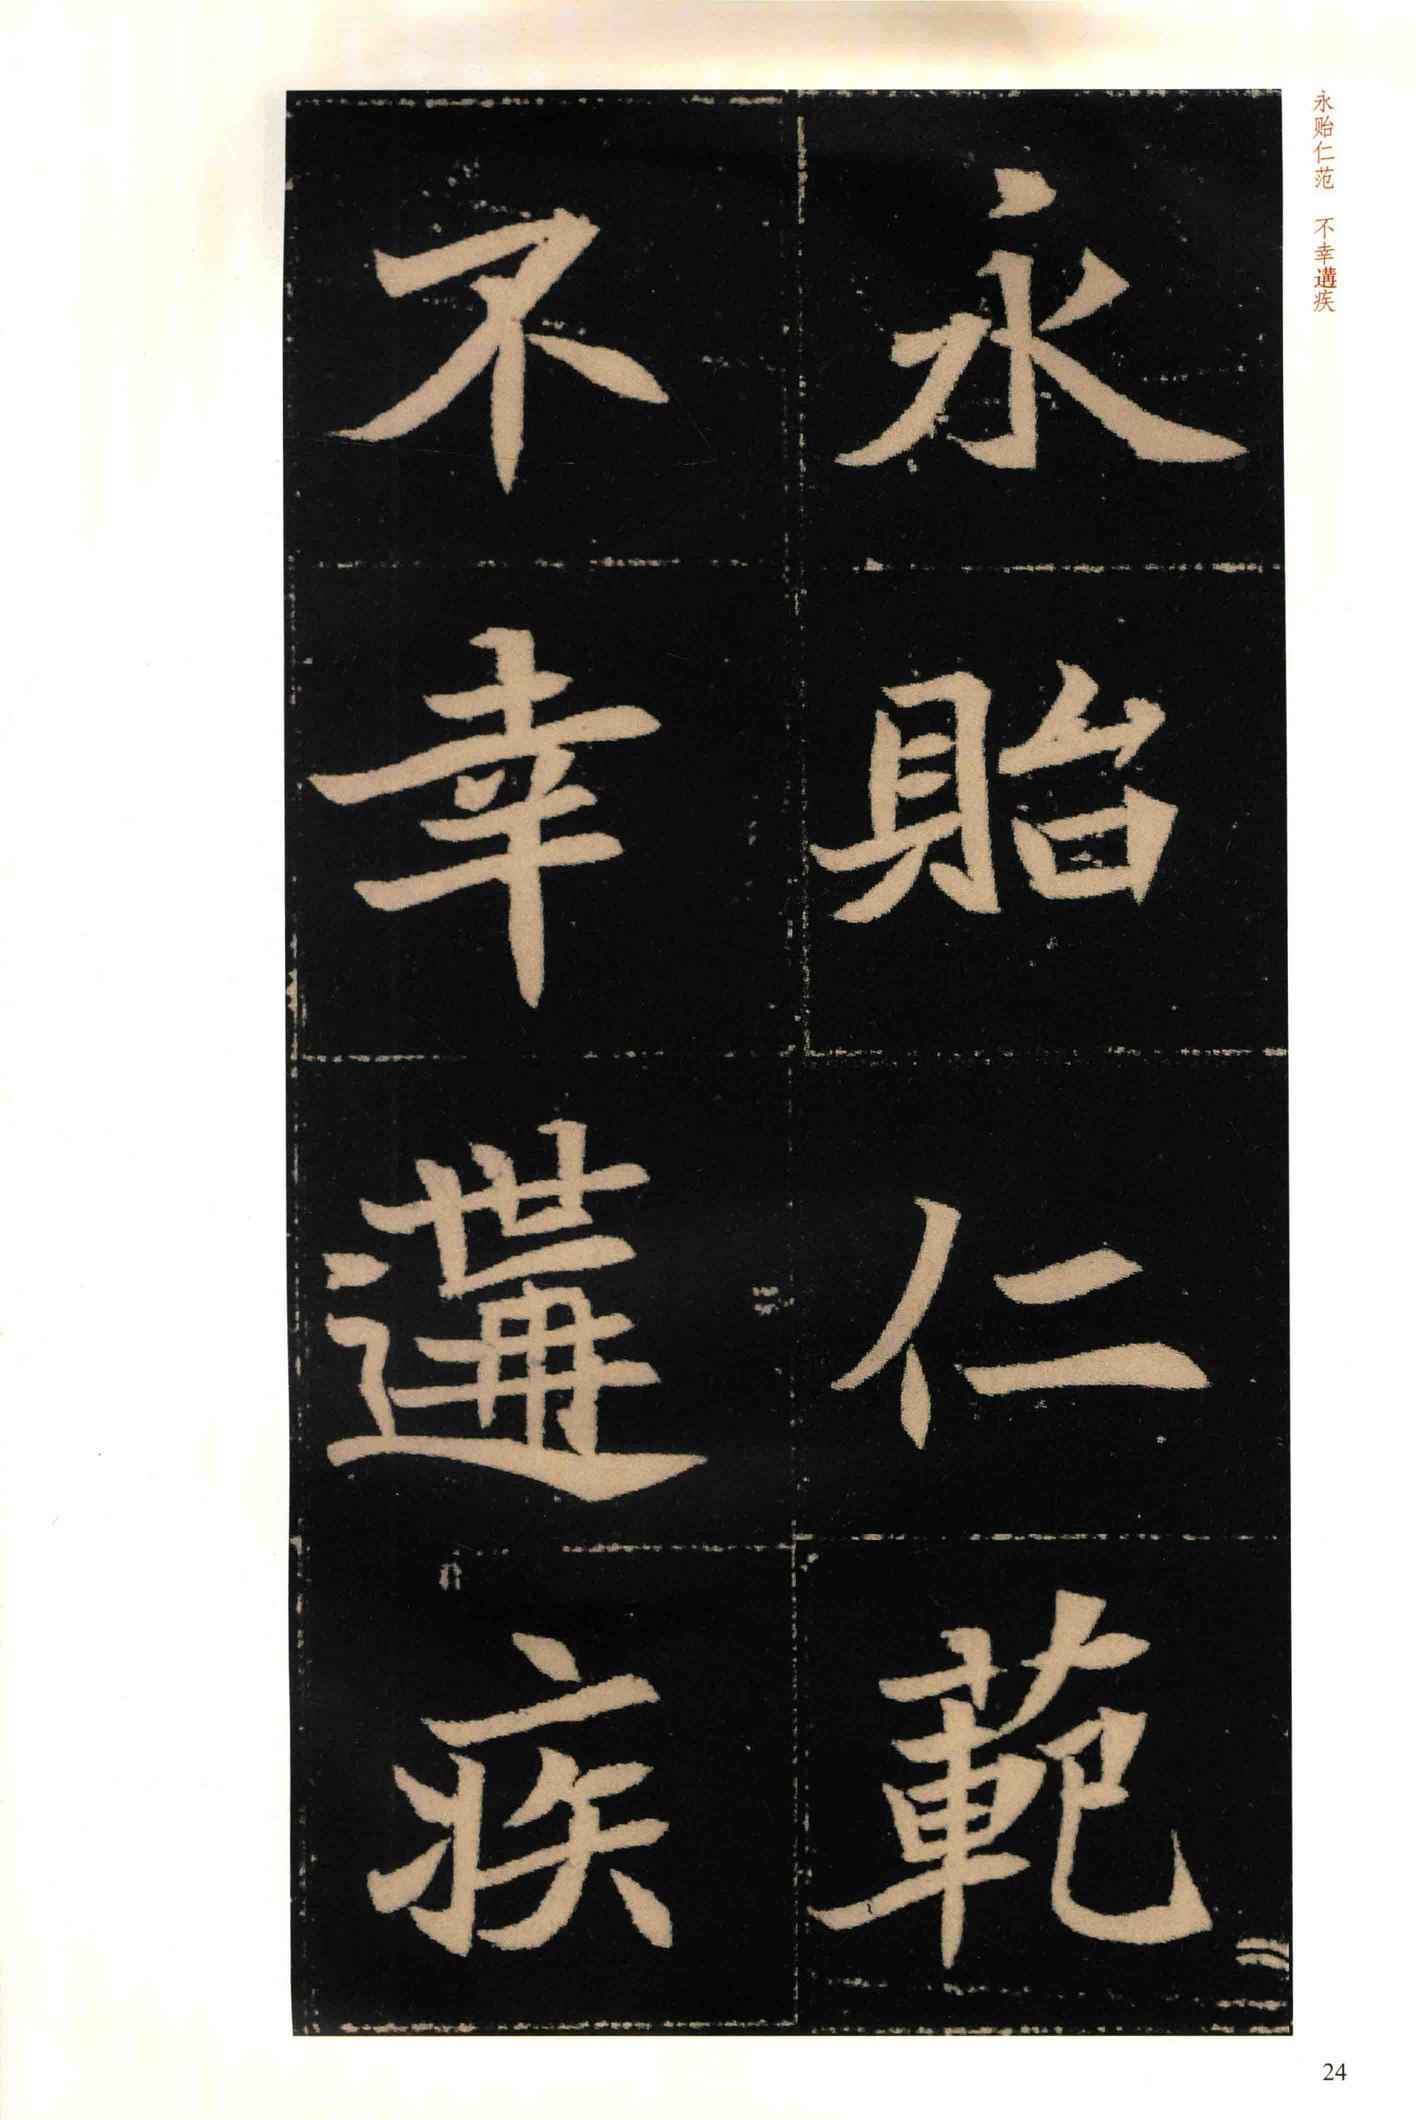 永贻仁范　不幸遘疾
永貽仁範
不幸遘疾
24